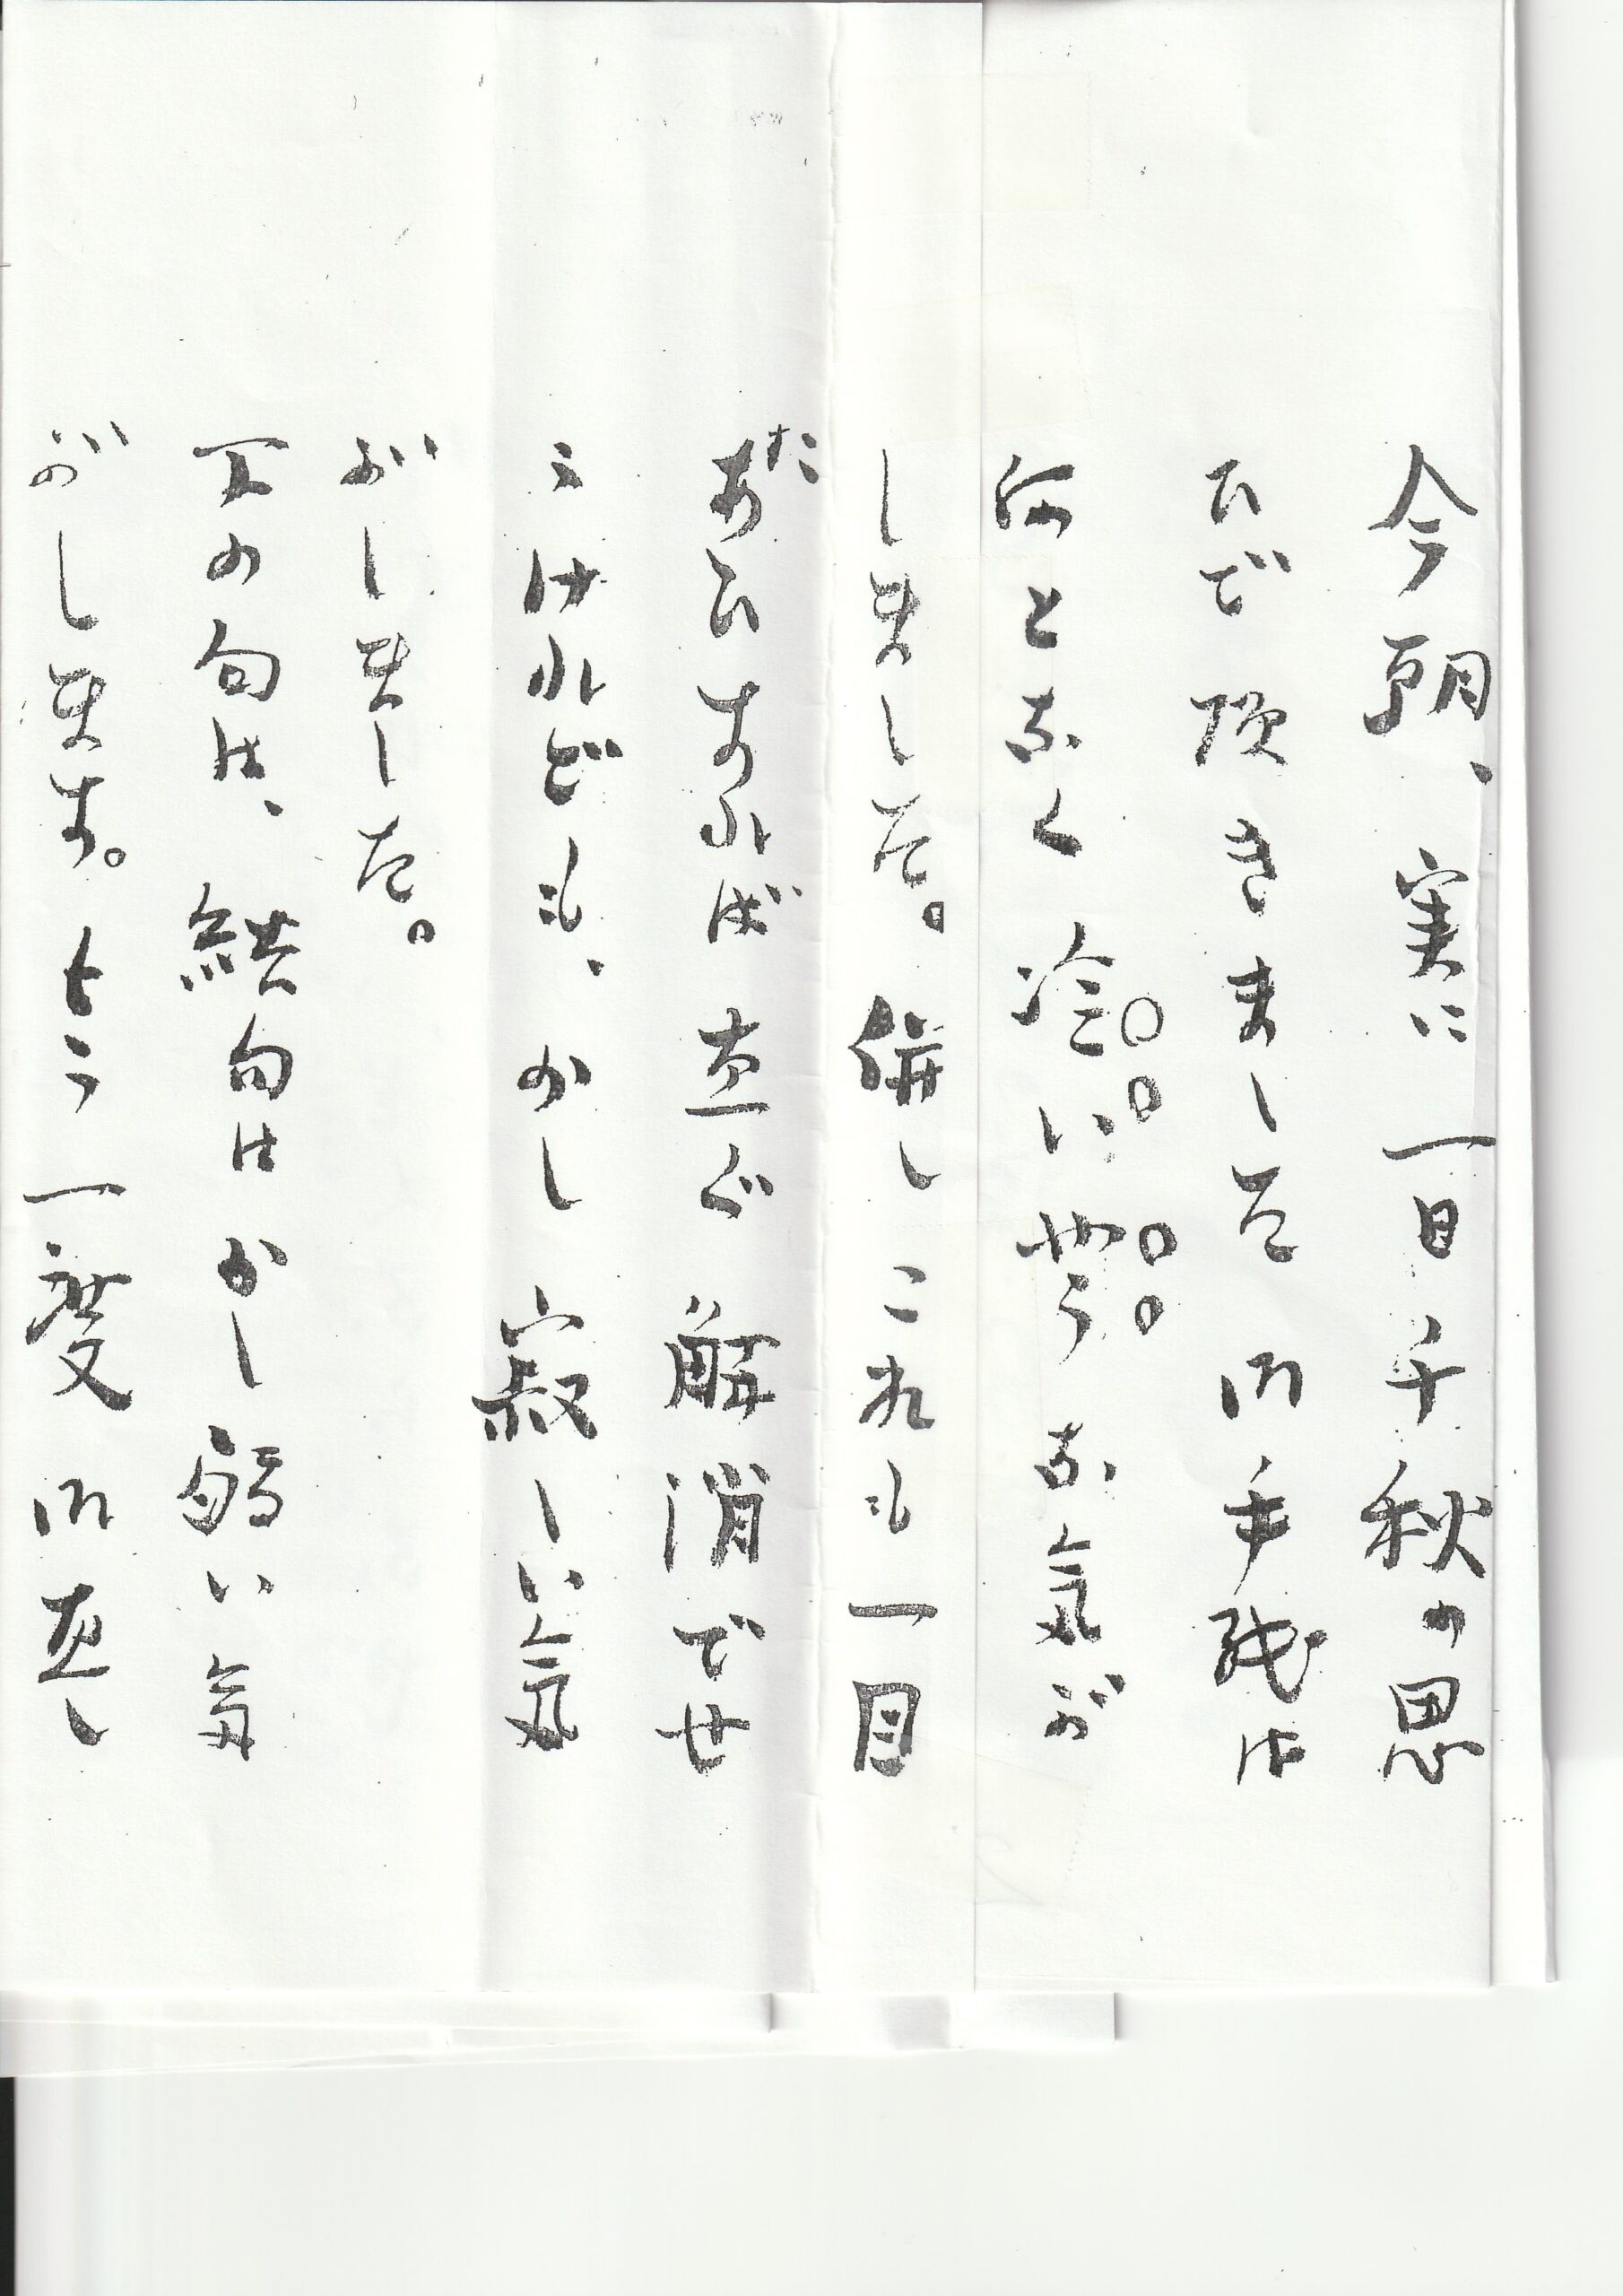 今朝、実に一日千秋の思
ひで頂きました御手残は
何となく冷いやうな気が
しました。併しこれも一目
あひすればた直ぐ解消でせ
うけれども、少し寂しい気
がしました。
下の句は、結句は少し弱い気
がします。もう一度御直し